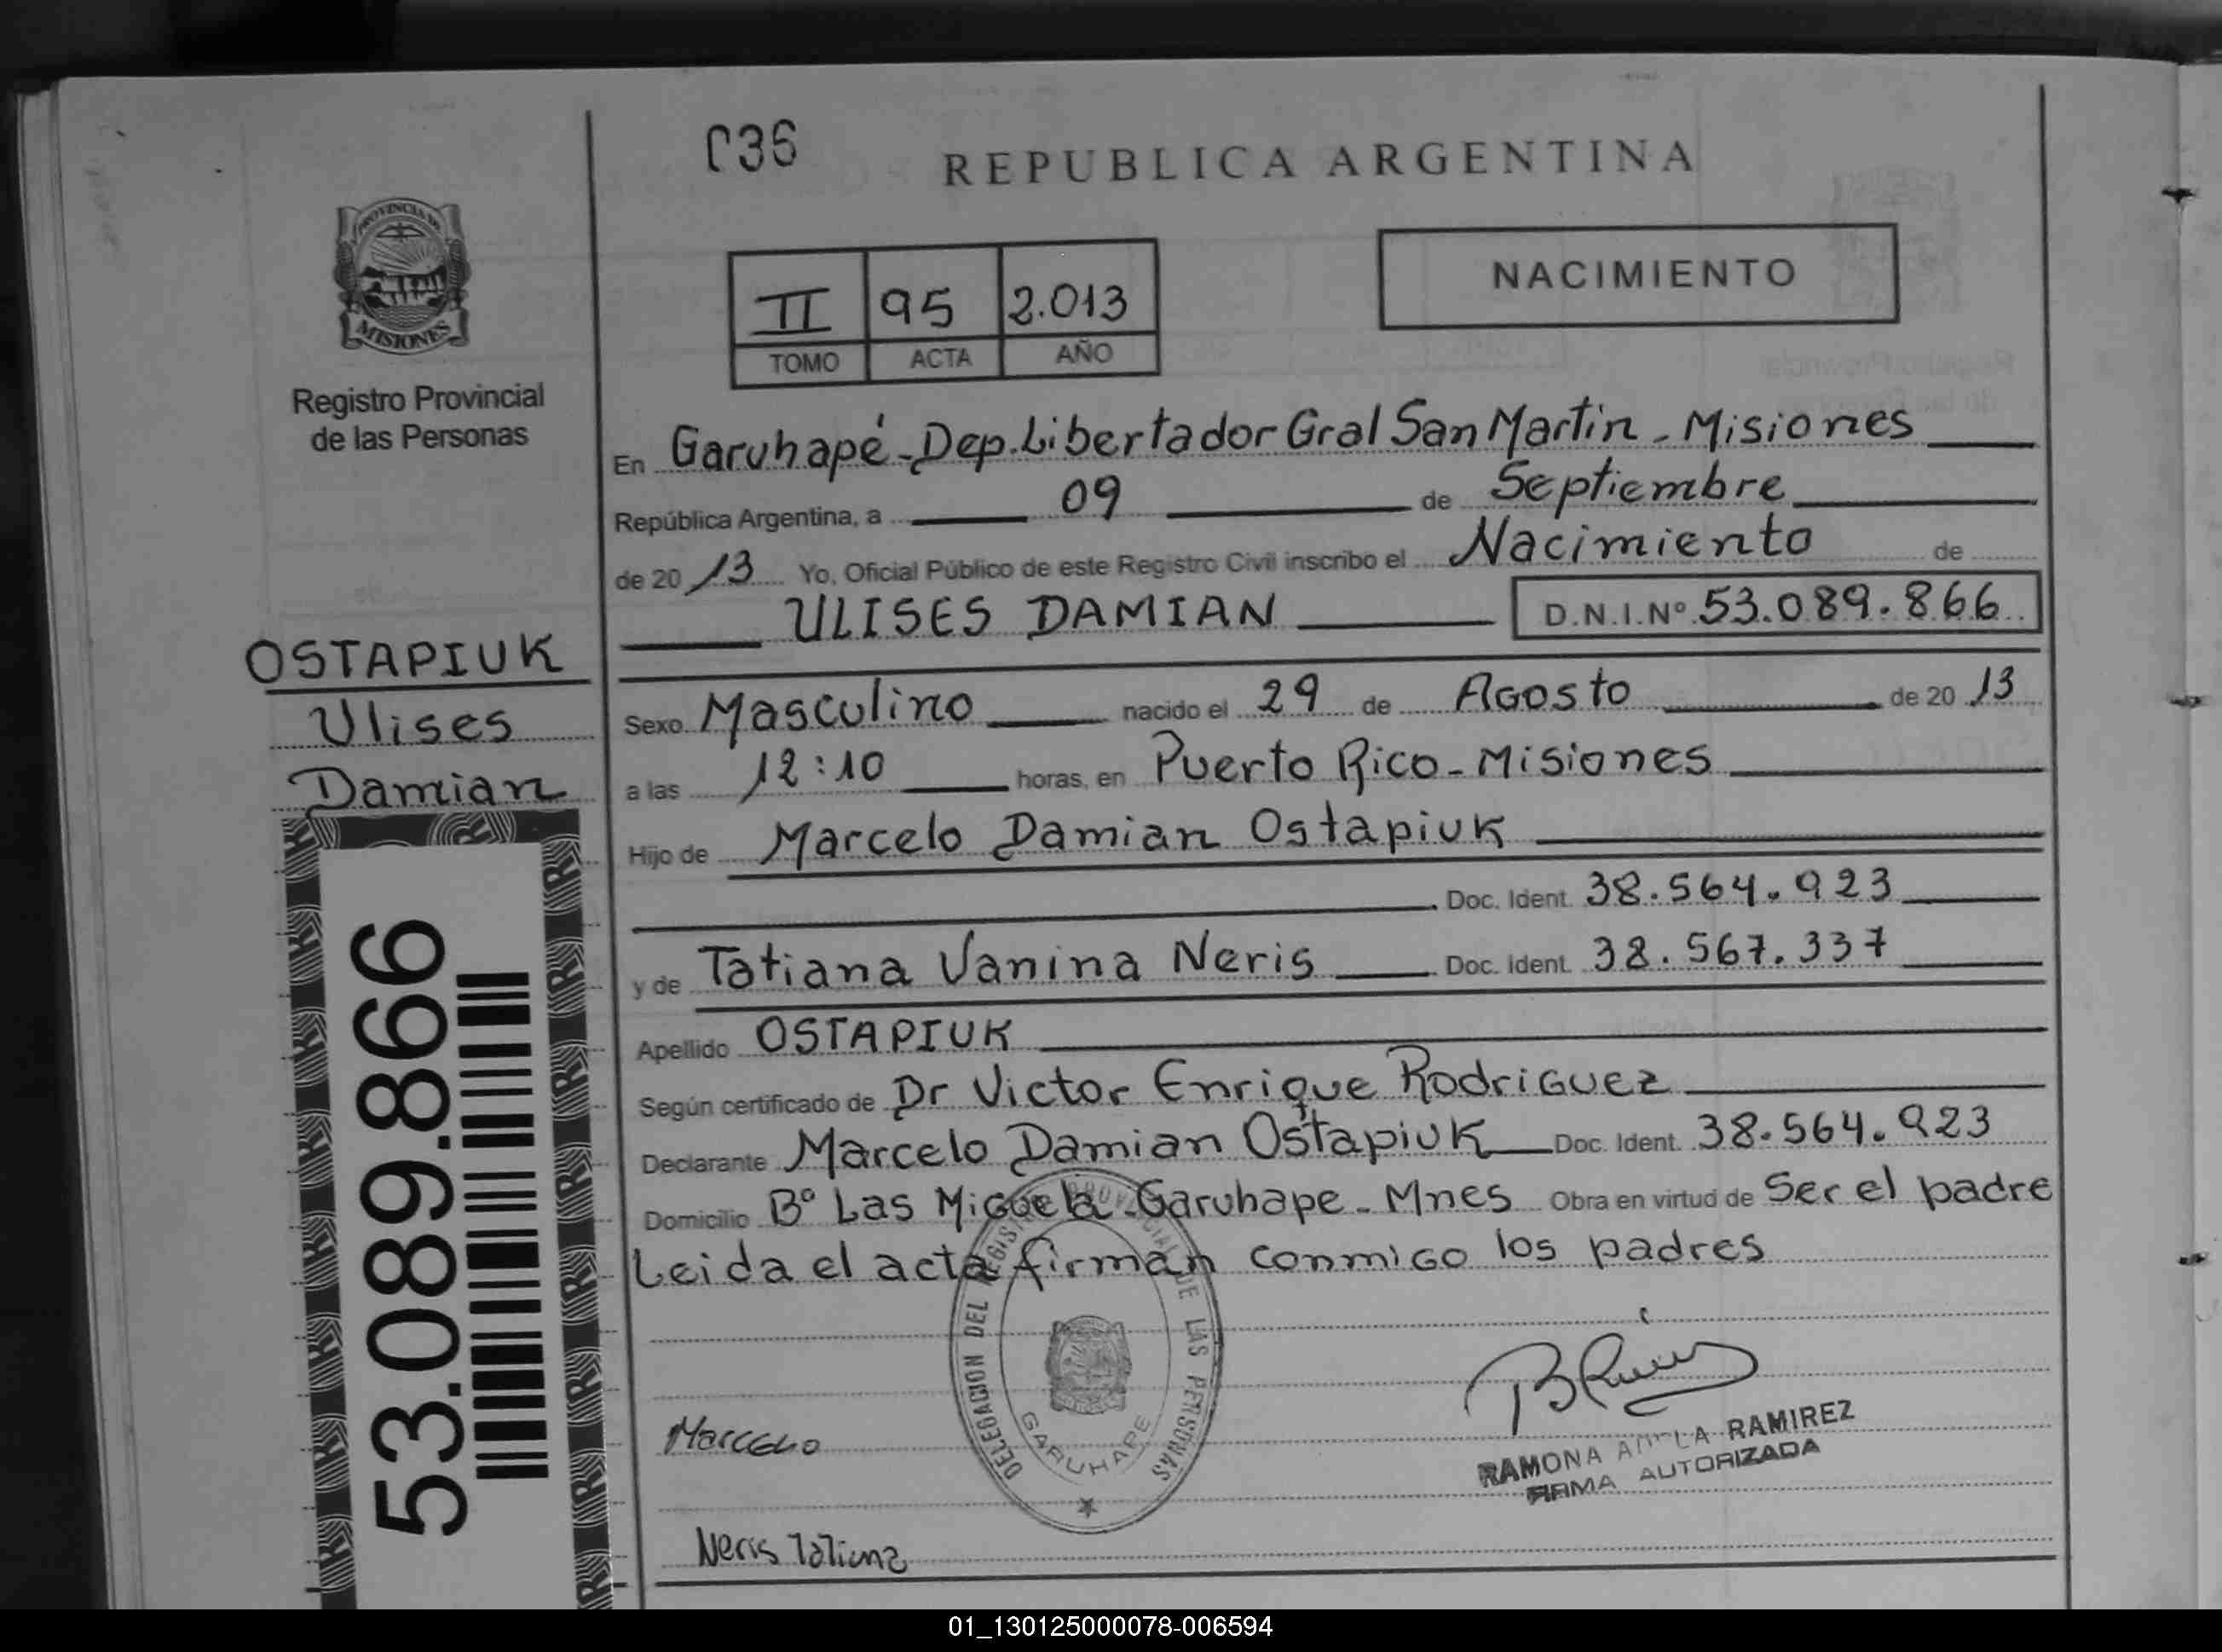 036
REPUBLICA ARGENTINA
PROVINCIA DE
MISIONES
Registro Provincial
de las Personas
II 95 2.013
TOMO ACTA AÑO
NACIMIENTO
En Garuhapé-Dep.Libertador Gral San Martin - Misiones
República Argentina, a 09 de Septiembre
de 20 13 Yo, Oficial Público de este Registro Civil inscribo el Nacimiento de
ULISES DAMIAN D.N.I.Nº 53.089.866
OSTAPIUK
Ulises
Damian
Sexo Masculino nacido el 29 de Agosto de 20 13
a las 12:10 horas, en Puerto Rico - Misiones
Hijo de Marcelo Damian Ostapiuk
Doc. Ident. 38.564.923
y de Tatiana Vanina Neris Doc. Ident. 38.567.337
Apellido OSTAPIUK
Según certificado de Dr Victor Enrique Rodriguez
Declarante Marcelo Damian Ostapiuk Doc. Ident. 38.564.923
Domicilio Bº Las Miguela - Garuhape - Mnes Obra en virtud de Ser el padre
Leida el acta firman conmigo los padres
53.089.866
DELEGACION DEL REGISTRO PROVINCIAL DE LAS PERSONAS
GARUHAPE
Marcelo
RAMONA RAMIREZ
FIRMA AUTORIZADA
Neris Tatiana
01_130125000078-006594